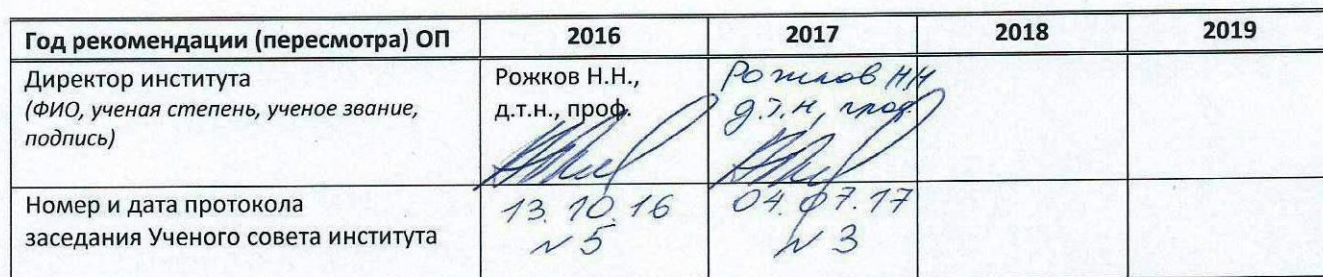 Год рекомендации (пересмотра) ОП 2016 2017 2018 2019
Директор института
(ФИО, ученая степень, ученое звание,
подпись)
Рожков Н.Н.,
д.т.н., проф.
Рожков НН
д.т.н, проф.
Номер и дата протокола
заседания Ученого совета института
13.10.16
№5
04.07.17
№3